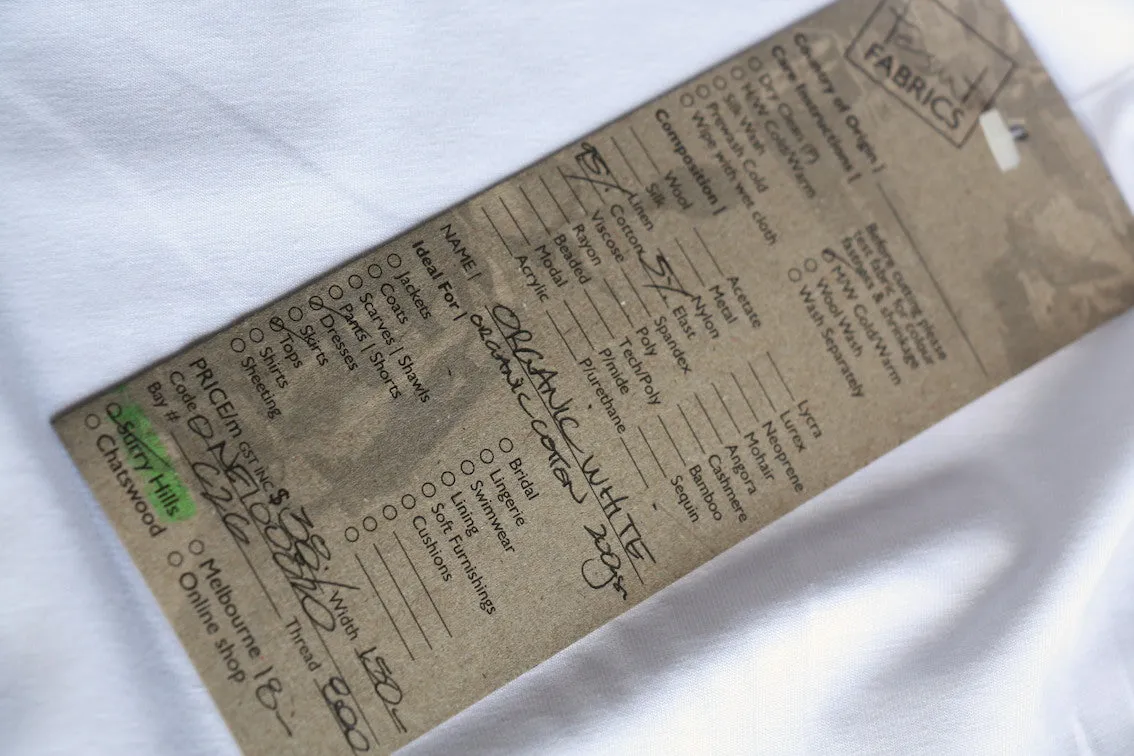 FABRICS
Country of Origin |
Care Instructions |
Dry Clean (P)
H/W Cold/Warm
Silk Wash
Prewash Cold
Wipe with wet cloth
Before cutting please
test fabric for colour
fastness & shrinkage
M/W Cold/Warm
Wool Wash
Wash Separately
Composition |
Wool
Silk
Linen
95% Cotton
Viscose
Rayon
Beaded
Modal
Acrylic
Acetate
Metal
Nylon
5% Elast
Spandex
Poly
Tech/Poly
P/mide
P/urethane
Lycra
Lurex
Neoprene
Mohair
Angora
Cashmere
Bamboo
Sequin
NAME | ORGANIC WHITE
ORGANIC COTTON 200gsm
Ideal For |
Jackets
Coats
Scarves | Shawls
Pants | Shorts
Dresses
Skirts
Tops
Shirts
Sheeting
Bridal
Lingerie
Swimwear
Lining
Soft Furnishings
Cushions
PRICE/m GST INC $ 38 Width 150
Code Thread 800
Bay # C26
Surry Hills
Chatswood
Melbourne 18
Online shop